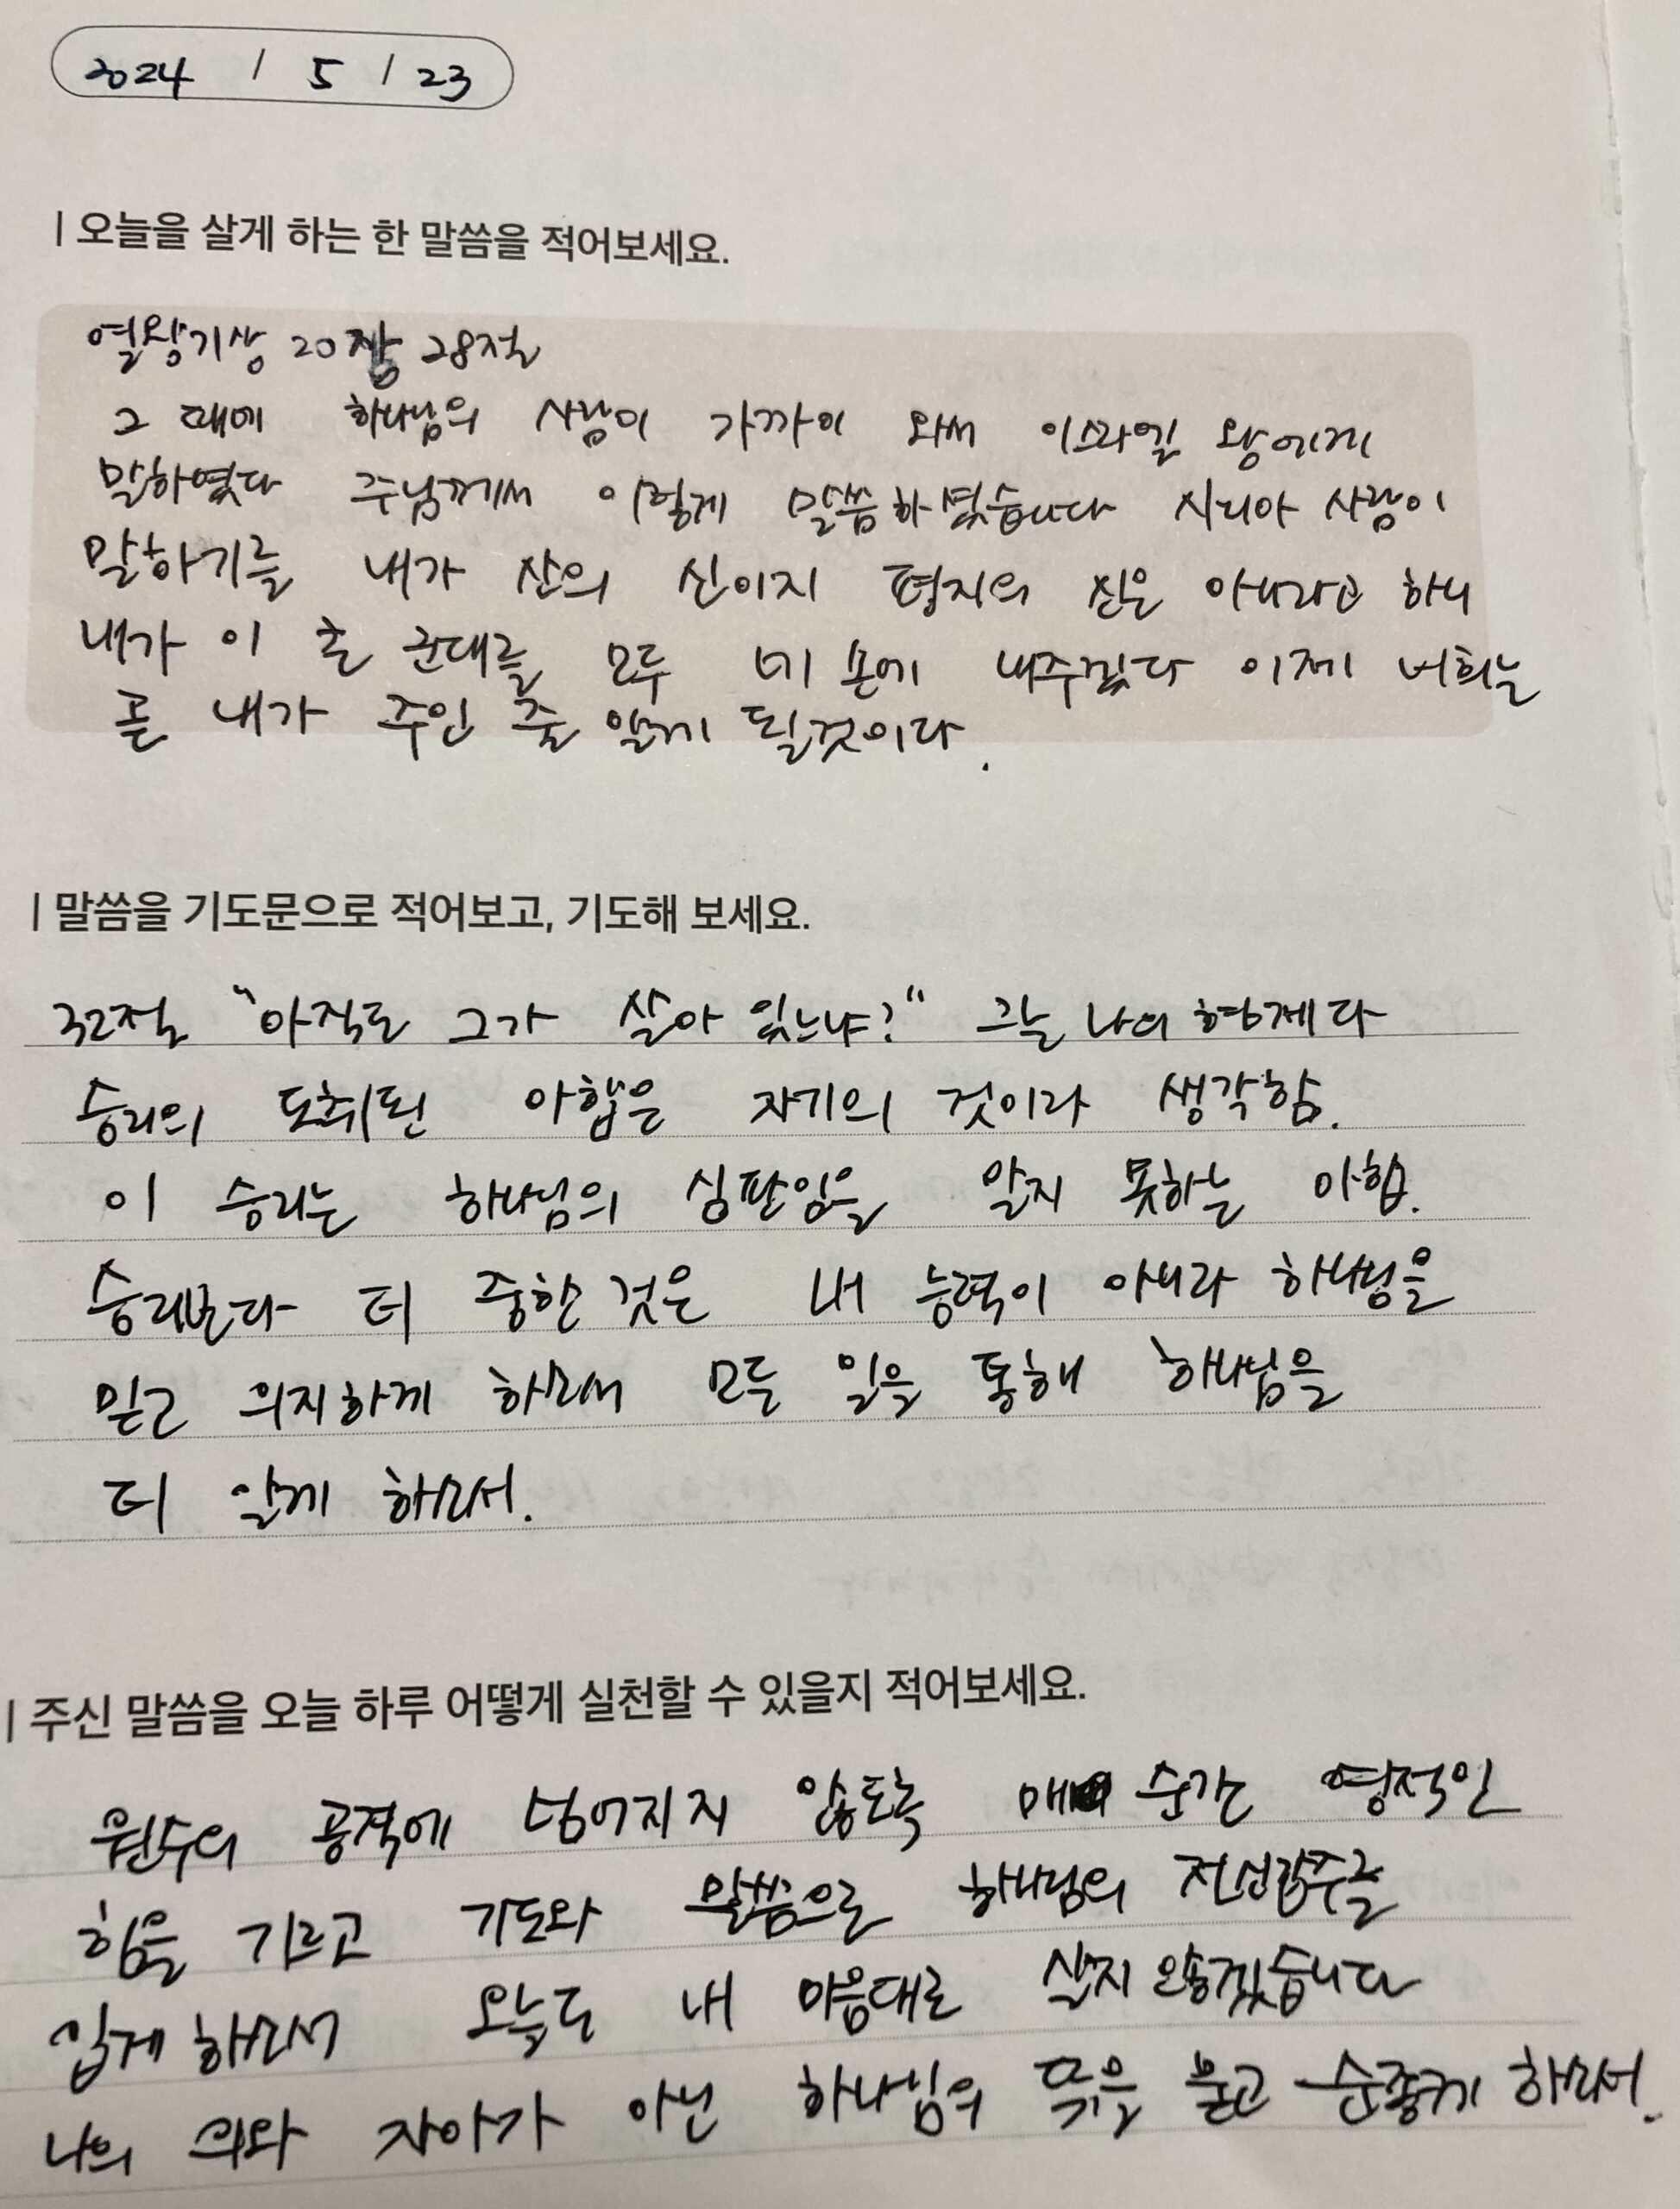 2024 / 5 / 23
| 오늘을 살게 하는 한 말씀을 적어보세요.
열왕기상 20장 28절
그 때에 하나님의 사람이 가까이 와서 이스라엘 왕에게
말하였다 주님께서 이렇게 말씀하셨습니다 시리아 사람이
말하기를 내가 산의 신이지 평지의 신은 아니라고 하니
내가 이 큰 군대를 모두 네 손에 내주겠다 이제 너희는
곧 내가 주인 줄 알게 될것이다.
| 말씀을 기도문으로 적어보고, 기도해 보세요.
32절 "아직도 그가 살아 있느냐?" 그는 나의 형제다
승리의 도취된 아합은 자기의 것이라 생각함.
이 승리는 하나님의 심판임을 알지 못하는 아합.
승리보다 더 중한 것은 내 능력이 아니라 하나님을
믿고 의지하게 하소서 모든 일을 통해 하나님을
더 알게 하소서.
| 주신 말씀을 오늘 하루 어떻게 실천할 수 있을지 적어보세요.
원수의 공격에 넘어지지 않도록 매 순간 영적인
힘을 기르고 기도와 말씀으로 하나님의 전신갑주를
입게 하소서 오늘도 내 마음대로 살지 않겠습니다
나의 의와 자아가 아닌 하나님의 뜻을 묻고 순종케 하소서.